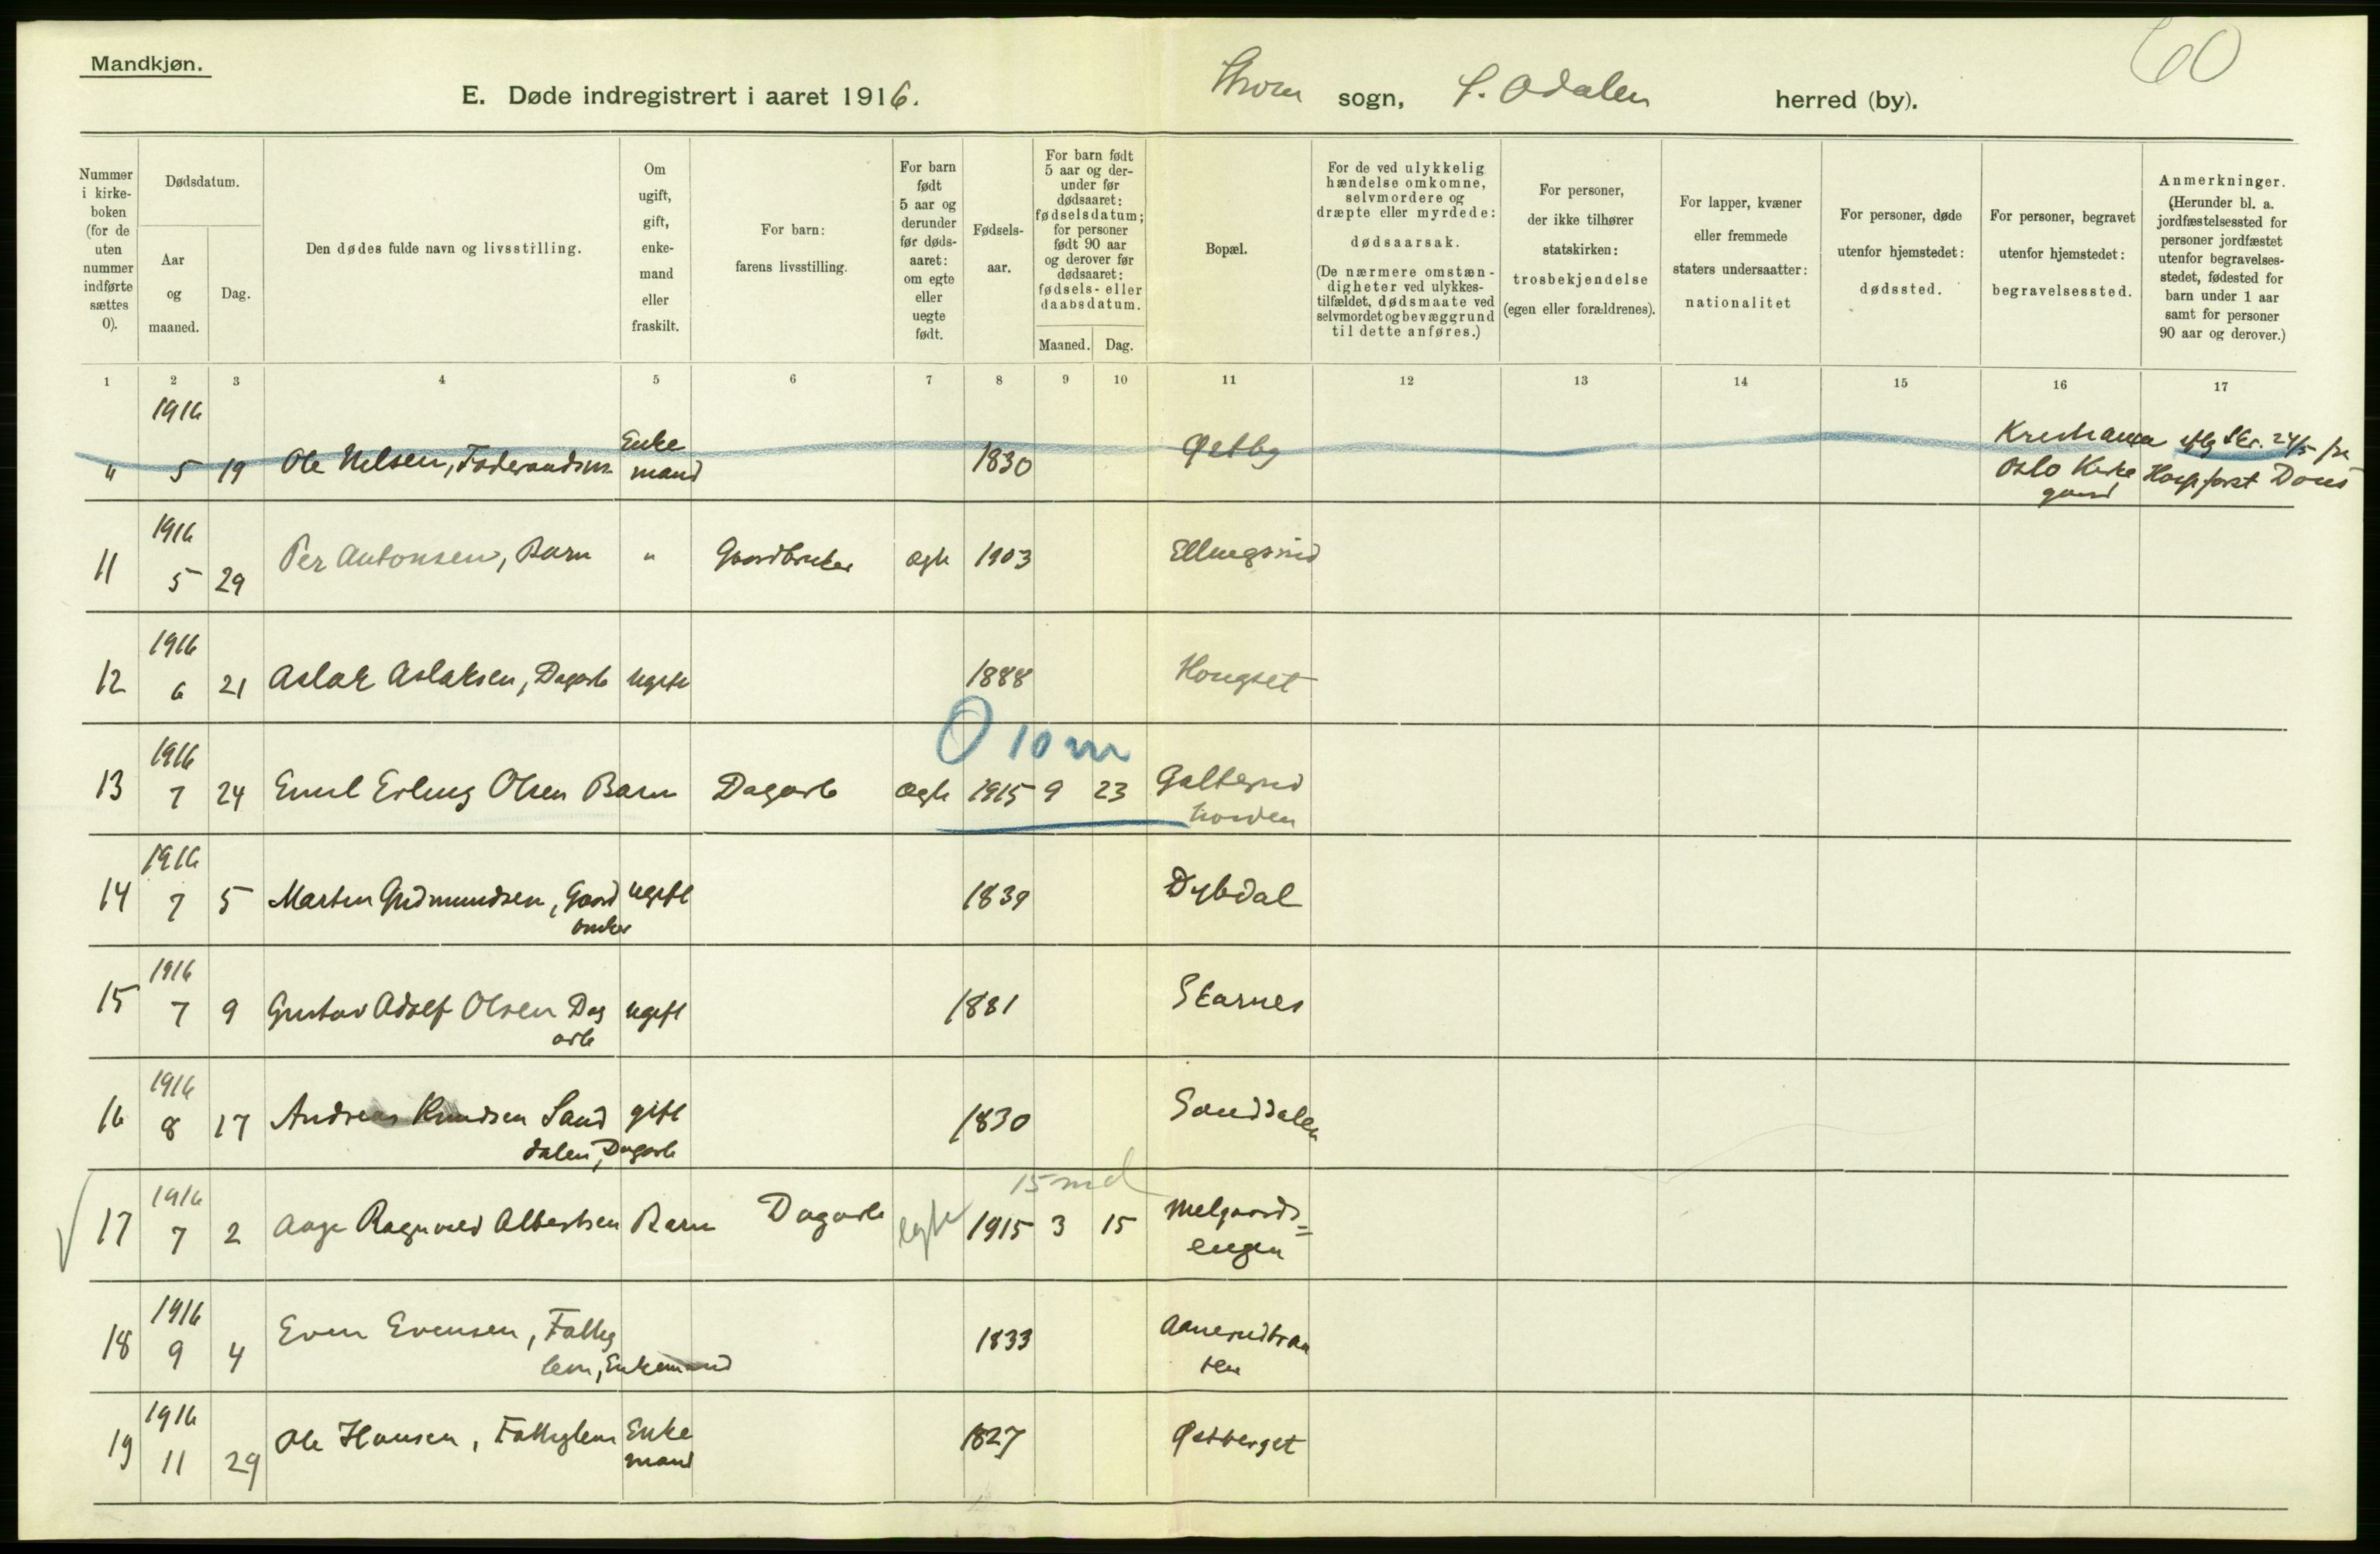 Mandkjøn.
60
E. Døde indregistrert i aaret 1916.
Strøm sogn, S. Odalen herred (by).
Nummer i kirke-boken (for de uten nummer indførte sættes 0).
Dødsdatum.
Aar og maaned.
Dag.
Den dødes fulde navn og livsstilling.
Om ugift, gift, enke-mand eller fraskilt.
For barn: farens livsstilling.
For barn født 5 aar og derunder før døds-aaret: om egte eller uegte født.
Fødsels-aar.
For barn født 5 aar og der-under før dødsaaret: fødselsdatum; for personer født 90 aar og derover før dødsaaret: fødsels- eller daabsdatum.
Maaned. Dag.
Bopæl.
For de ved ulykkelig hændelse omkomne, selvmordere og dræpte eller myrdede: dødsaarsak. (De nærmere omstæn-digheter ved ulykkes-tilfældet, dødsmaate ved selvmordet og bevæggrund til dette anføres.)
For personer, der ikke tilhører statskirken: trosbekjendelse (egen eller forældrenes).
For lapper, kvæner eller fremmede staters undersaatter: nationalitet
For personer, døde utenfor hjemstedet: dødssted.
For personer, begravet utenfor hjemstedet: begravelsessted.
Anmerkninger. (Herunder bl. a. jordfæstelsessted for personer jordfæstet utenfor begravelses-stedet, fødested for barn under 1 aar samt for personer 90 aar og derover.)
1 2 3 4 5 6 7 8 9 10 11 12 13 14 15 16 17
1916
" 5 19 Ole Nelsen, Enke mand 1830 Østby Kristiania Oslo Kirke gaard 24/5
1916
11 5 29 Per Antonsen, Barn " Gaardbruker ægte 1903 Ellingsrud
1916
12 6 21 Aslak Aslaksen, Dagarb ugift 1888 Hongset
0 10 m
1916
13 7 24 Emil Erling Olsen Barn Dagarb ægte 1915 9 23 Galterud
1916
14 7 5 Martin Gudmundsen, Gaard bruker ugift 1839 Dybdal
1916
15 7 9 Gustav Adolf Olsen Dag arb ugift 1881 Skarnes
1916
16 8 17 Andreas Knudsen Sand dalen, Dagarb gift 1830 Sanddalen
15 md
1916
17 7 2 Aage Ragnvald Albertsen Barn Dagarb egte 1915 3 15 Melgaards= engen
1916
18 9 4 Even Evensen, Fattig lem, Enkemand 1833
1916
19 11 29 Ole Hansen, Fattiglem Enke mand 1827 Østberget